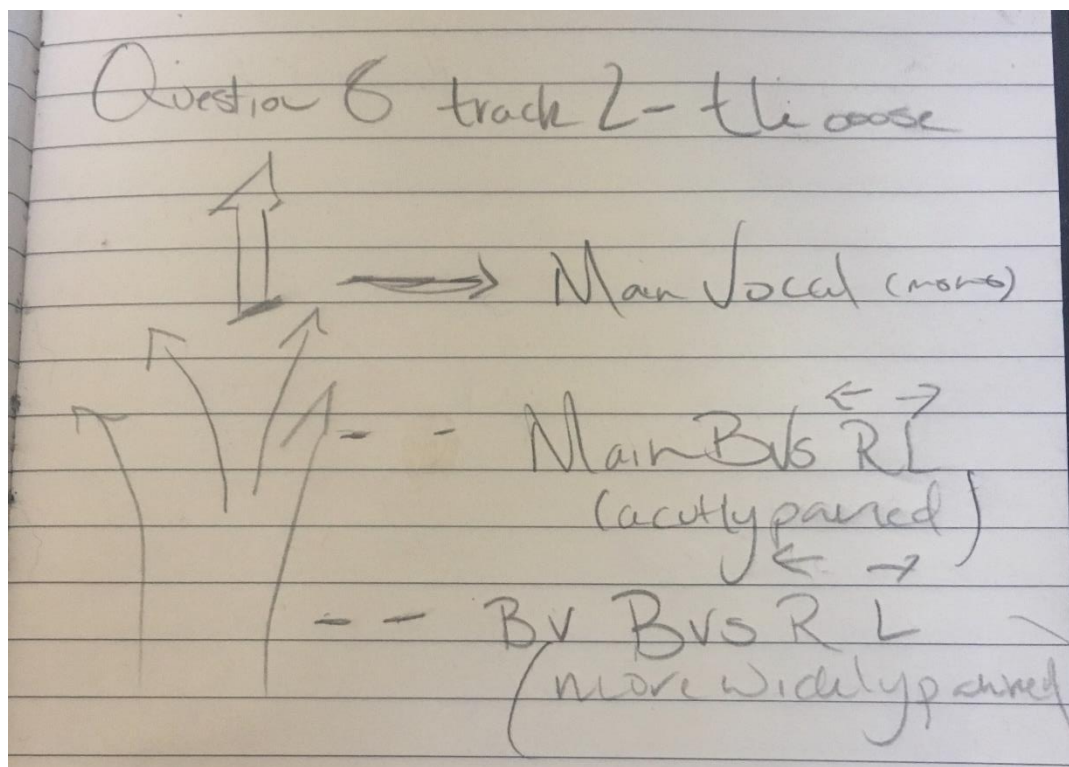 Question 6 track 2 - the
Main Vocal (mono)
Main BVs R L
(acutly panned)
Bv Bvs R L
(more widely panned